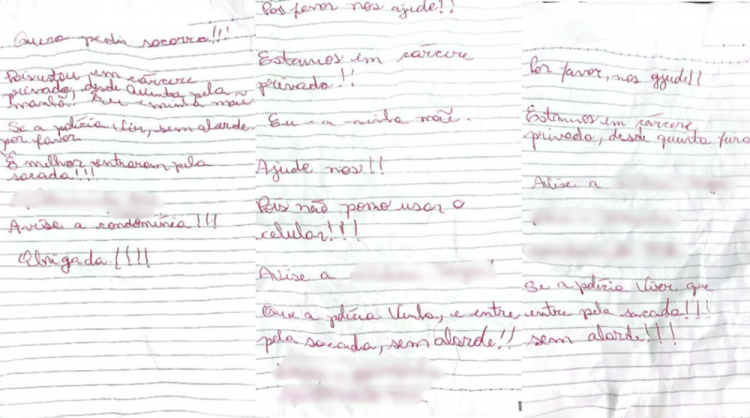 Quero pedir socorro!!!
Pois estou em cárcere
privado, desde Quinta pela
manhã! Eu e minha mãe
Se a polícia Vier, sem alarde
por favor
É melhor entrarem pela
sacada!!!
Avise a condomínia!!!
Obrigada!!!!
Por favor nos ajude!!
Estamos em cárcere
privado!!
Eu e a minha mãe.
Ajude nos!!
Pois não posso usar o
celular!!!
Avise a
Que a polícia Venha, e entre
pela sacada, sem alarde!!
Por favor, nos ajude!!
Estamos em cárcere
privado, desde quinta feira
Avise a
Se a polícia Vier que
entre pela sacada!!!
sem alarde!!!